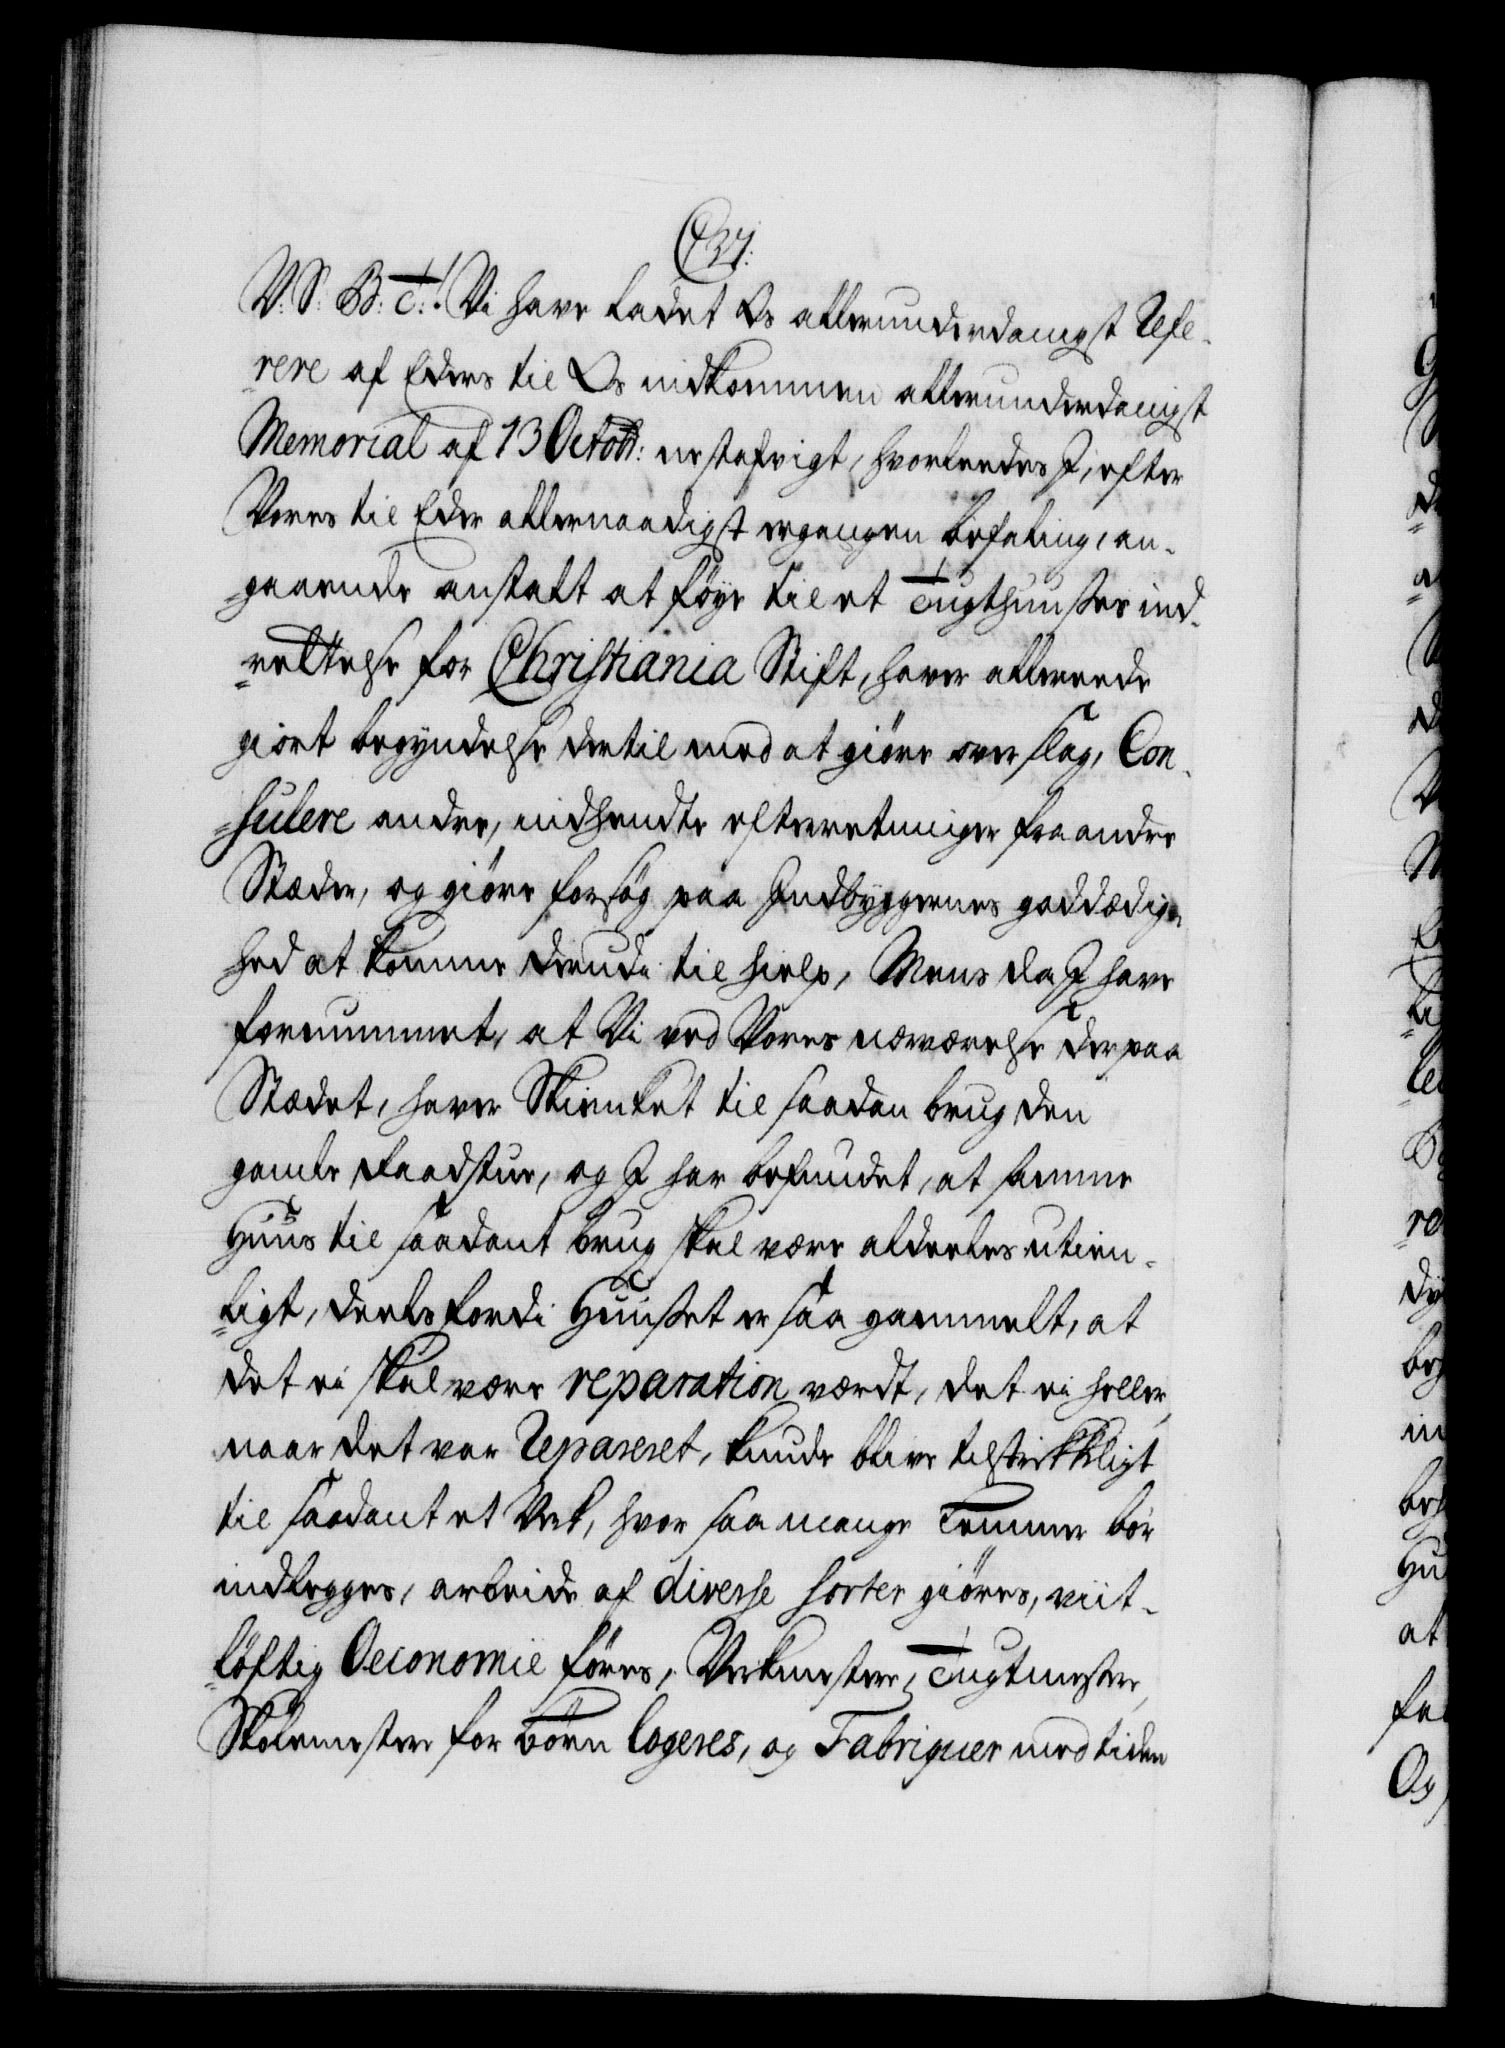 C. R. VI.
V: S: B: T:! Vi have ladet Os allerunderdanigst Refe-
rere af Eders til Os indkommen allerunderdanigst
Memorial af 13 Octobr: nestafvigt, hvorledes I, efter
Vores til Eder allernaadigst ergangen befaling, an-
gaaende anstalt at føye til et Tugthuuses ind-
rettelse for Christiania Stift, haver allereede
giort begyndelse dertil med at giøre overslag, Con-
sulere andre, indhendte efterretninger fra andre
Stæder, og giøre forsøg paa Indbyggernes goddædig-
hed at komme derudi til hielp, Mens da I have
fornummet, at Vi ved Vores nærværelse der paa
Stædet, haver Skienket til saadan brug den
gamle Raadstue, og I har befundet, at samme
Huus til saadant brug skal være aldeeles utien-
ligt, deels fordi Huuset er saa gammelt, at
det ei skal være reparation værdt, det ei heller,
naar det var Repareret, kunde blive tilstrekkeligt
til saadant et Verk, hvor saa mange Lemmer bør
indlegges, arbeide af diverse sorter giøres, viit-
løftig Oeconomie føres, Verkmestere, Tugtmestere,
Skolemestere for børn logeres, og Fabriquer med tiden